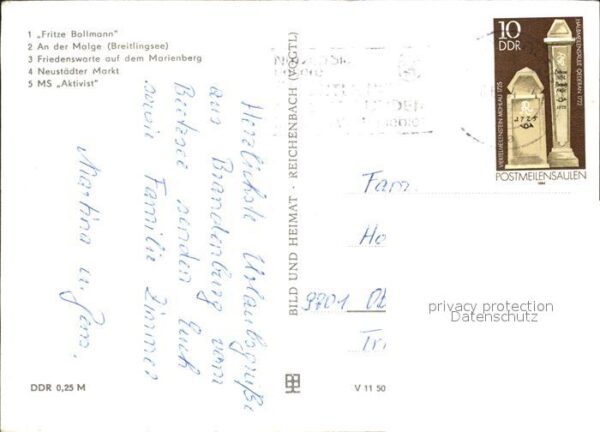 1 „Fritze Bollmann"
2 An der Malge (Breitlingsee)
3 Friedenswarte auf dem Marienberg
4 Neustädter Markt
5 MS „Aktivist"
Herzlichste Urlaubsgrüße
aus Brandenburg vom
Beetzsee senden Euch
sowie Familie Zimmer
Martina u. Jens.
DDR 0,25 M
BILD UND HEIMAT · REICHENBACH (VOGTL)
V 11 50
10
DDR
VIERTELMEILENSTEIN MÜHLAU 1725
HALBMEILENSÄULE OEDERAN 1722
POSTMEILENSÄULEN
1984
Fam.
Ho
9701
Tr
privacy protection
Datenschutz